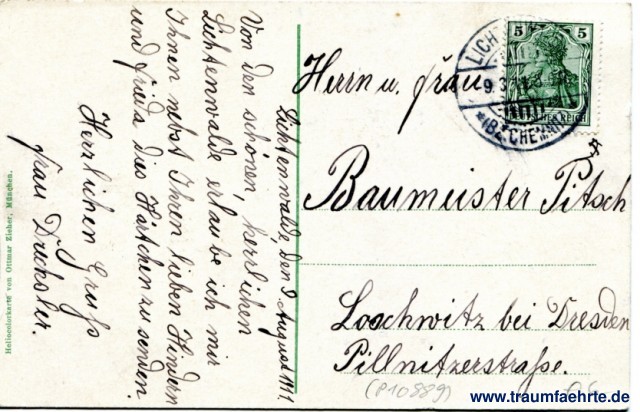 Lichtenwalde, den 9. August 1911.
Von den schönen, herrlichen
Lichtenwalde erlaube ich mir
Ihnen nebst Ihren lieben Kindern
und Frieda dies Kärtchen zu senden.
Herzlichen Gruß
Frau Drechsler.
Heliocolorkarte von Ottmar Zieher, München.
5 5
(BZ CHEMN
Herrn u. Frau
Baumeister Pitsch
Loschwitz bei Dresden
Pillnitzerstraße.
(P10889)
www.traumfaehrte.de